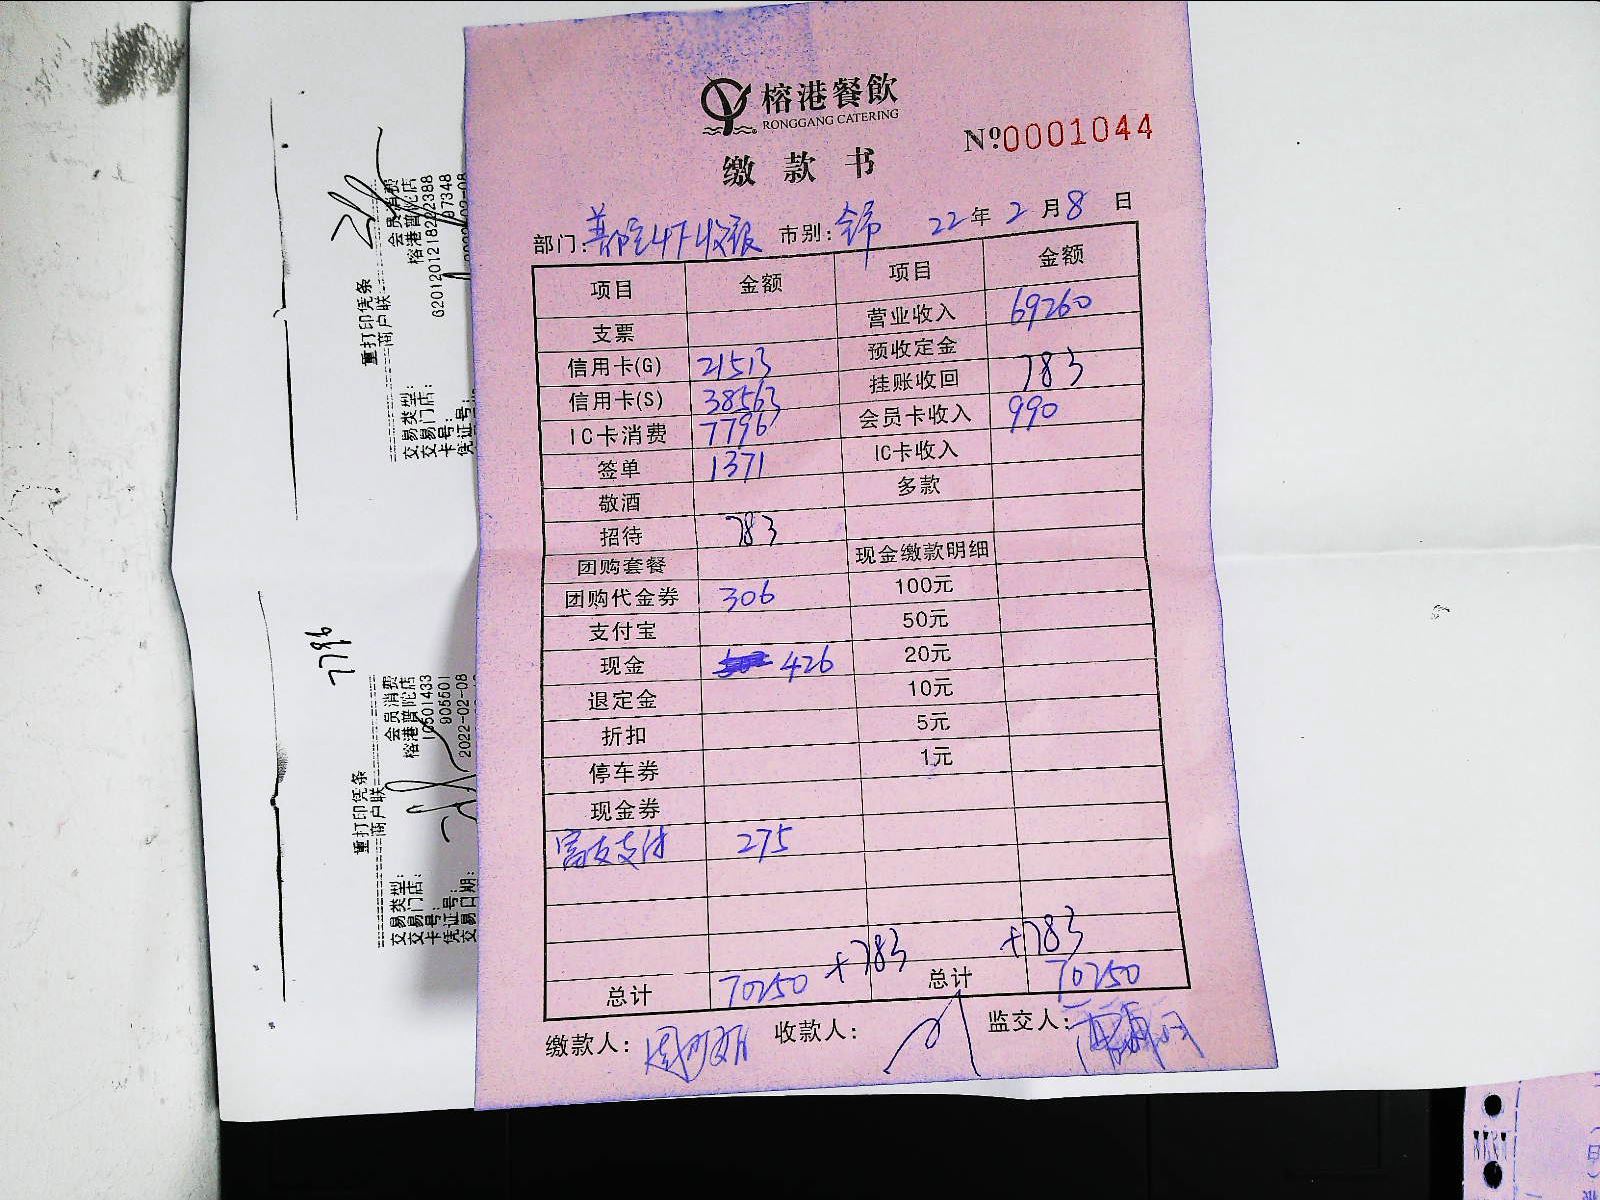 榕港餐飲
RONGGANG CATERING
№ 0001044
缴款书
部门: 普陀4F收银 市别: 全市 22年2月8日
项目 金额 项目 金额
支票 营业收入 69260
信用卡(G) 21513 预收定金
信用卡(S) 38563 挂账收回 783
IC卡消费 7796 会员卡收入 990
签单 1371 IC卡收入
敬酒 多款
招待 783
团购套餐 现金缴款明细
团购代金券 306 100元
支付宝 50元
现金 426 20元
退定金 10元
折扣 5元
停车券 1元
现金券
富友支付 275
+783 +783
总计 70250 总计 70250
缴款人: 收款人: 监交人:
重打印凭条
商户联
交易类型: 会员消费
交易门店: 榕港普陀店
卡号: G2012012182
2388
凭证号: 97348
7796
重打印凭条
商户联
交易类型: 会员消费
交易门店: 榕港普陀店
卡号: 10501433
凭证号: 905501
交易日期: 2022-02-08